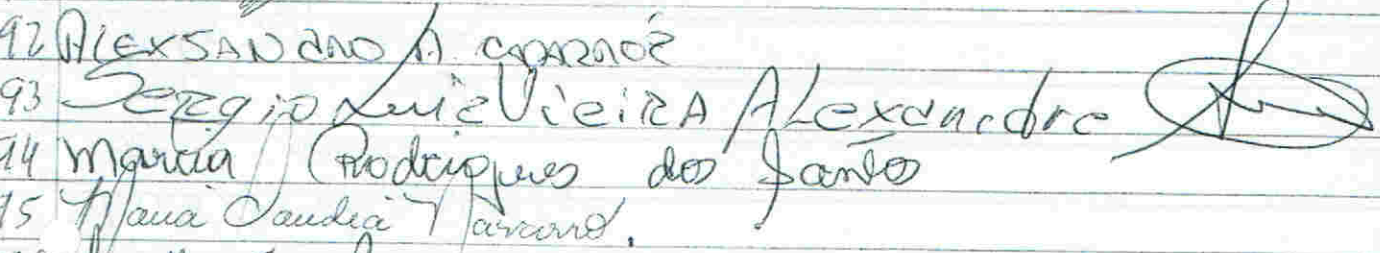 92 ALEXSANDRO A
93 Sergio Luiz Vieira Alexandre
94 Marcia Rodrigues dos Santos
95 Maria Claudia